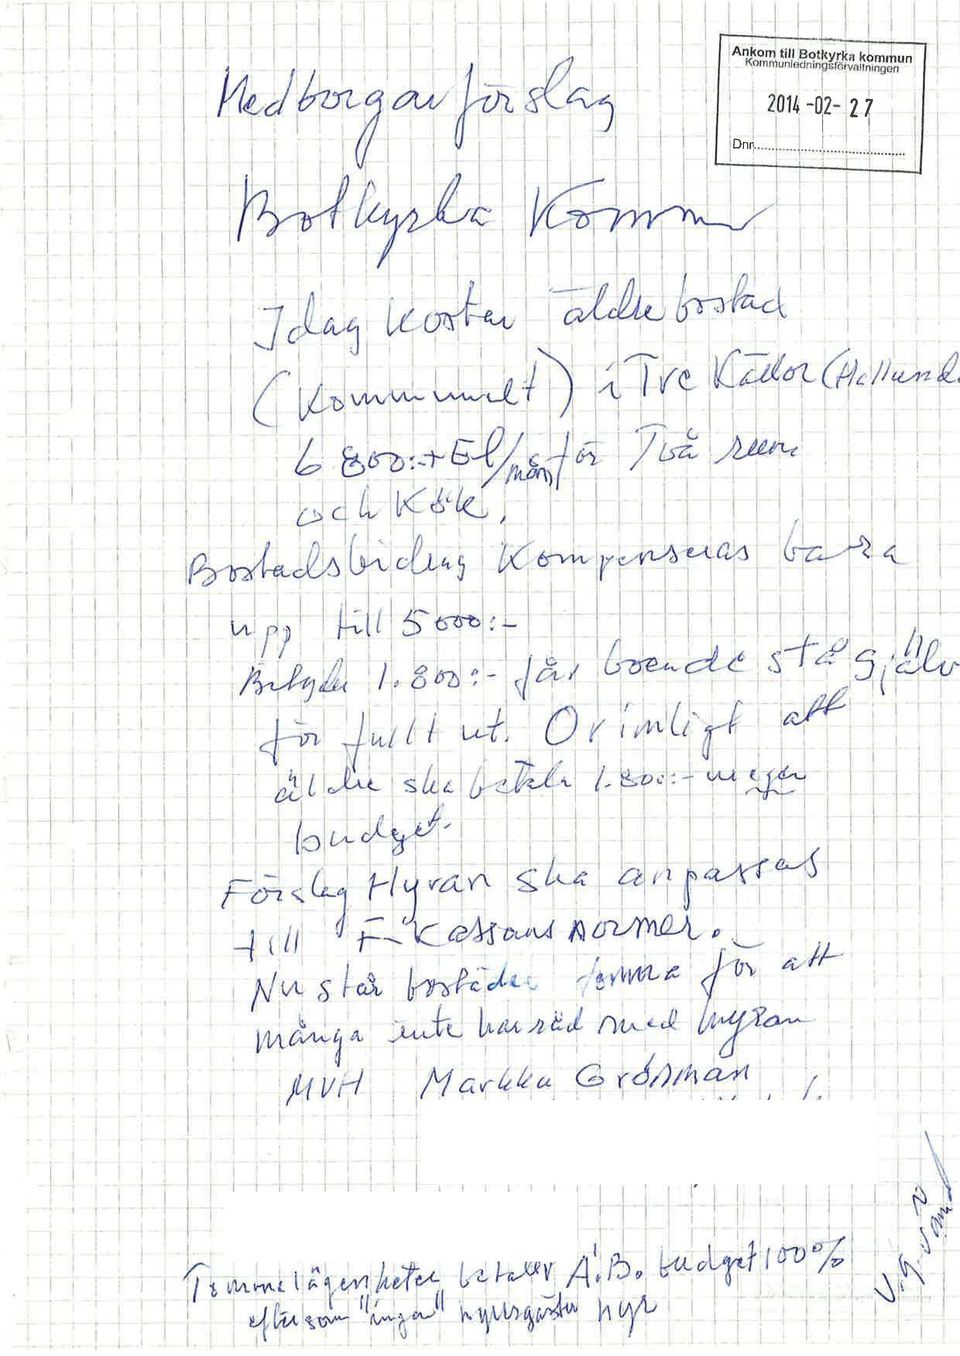 Ankom till Botkyrka kommun
Kommunledningsförvaltningen
2014 -02- 27
Dnr
Medborgarförslag
Botkyrka Kommun
Idag kostar äldrebostad
(Kommunalt) i Tre Källor (Hallunda
6 800:-+El/mån för Två rum
och Kök,
Bostadsbidrag Kompenseras bara
upp till 5000:-
Betyder 1.800:- får boende stå själv
för fullt ut. Orimligt att
äldre ska betala 1.800:- ur egen
budget.
Förslag Hyran ska anpassas
till F-Kassans normer.
Nu står bostäder tomma för att
många inte har råd med hyran
MVH Markku Grönman
V.g. vänd
Tomma lägenheter betalar Ä.B. budget 100%
eftersom "ingen" hyresgäster hyr